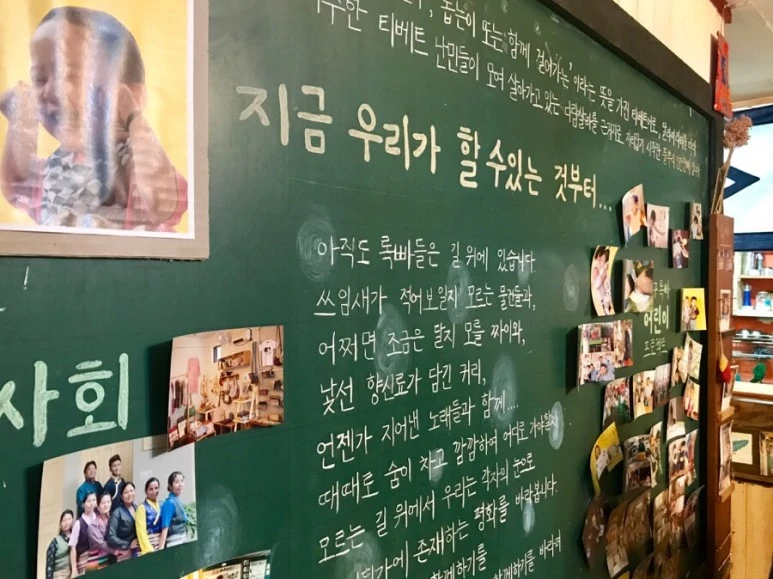 또는 '함께 걸어가는' 이라는 뜻을 가진 티베트어로,
티베트 난민들이 모여 살아가고 있는 다람살라를 근거지로
지금 우리가 할 수 있는 것부터...
아직도 록빠들은 길 위에 있습니다
쓰임새가 적어보일지 모르는 물건들과,
어쩌면 조금은 달지 모를 짜이와,
낯선 향신료가 담긴 커리,
언젠가 지어낸 노래들과 함께....
때때로 숨이 차고 깜깜하여 어디로 가야할지
모르는 길 위에서 우리는 각자의 눈으로
존재하는 평화를 바라봅니다.
함께하기를 바라며
사회
어린이
프로젝트